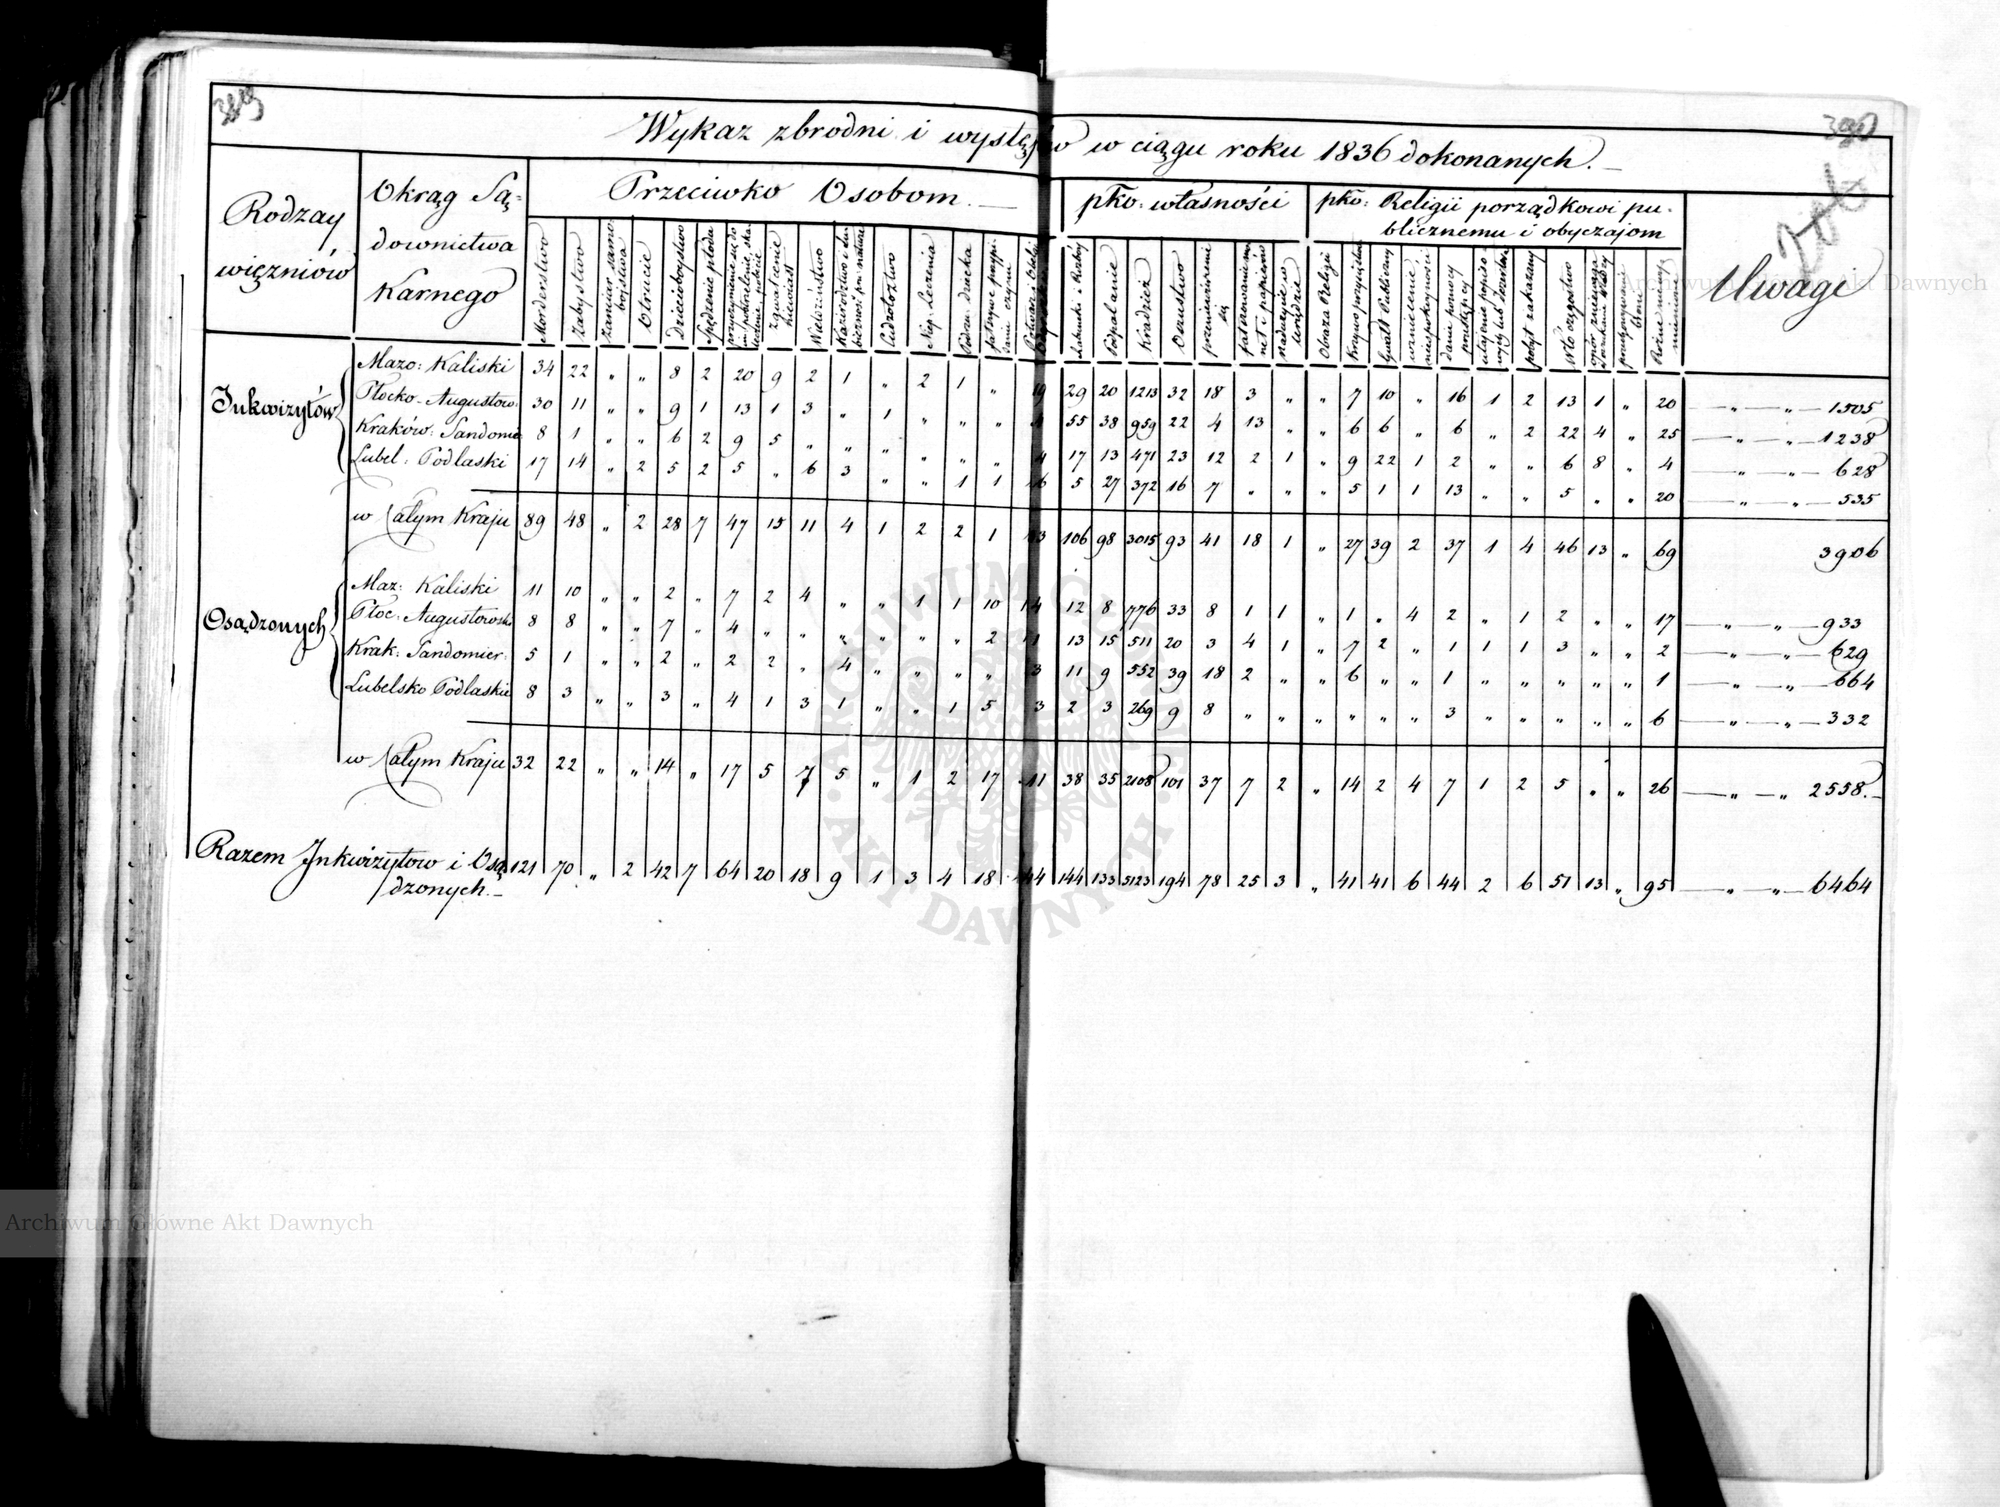 Wykaz zbrodni i występków w ciągu roku 1836 dokonanych.
Rodzay więzniów
Okrąg Są-
downictwa
Karnego
Przeciwko Osobom.
pko: własności
pko: Religii porządkowi pu-
blicznemu i obyczajom
Uwagi
Morderstwo
Zabojstwo
Zamiar samo-
bojstwa
Otrucie
Dzieciobojstwo
Spędzenie płodu
zgwałcenie
Wielożeństwo
Cudzołoztwo
Nep. Leczenia
Podrz. dziecka
Podpalanie
Kradzież
Oszustwo
Obraza Religii
Gwałt Publiczny
pobyt zakazany
Włóczęgostwo
Inkwizytów
Mazo: Kaliski 34 22 „ „ 8 2 20 9 2 1 „ 2 1 „ 19 29 20 1213 32 18 3 „ „ 7 10 „ 16 1 2 13 1 „ 20 — „ — „ — 1505
Płocko-Augustow: 30 11 „ „ 9 1 13 1 3 „ 1 „ „ „ 4 55 38 959 22 4 13 „ „ 6 6 „ 6 „ 2 22 4 „ 25 — „ — „ — 1238
Kraków: Sandomie 8 1 „ „ 6 2 9 5 „ „ „ „ „ „ 4 17 13 471 23 12 2 1 „ 9 22 1 2 „ „ 6 8 „ 4 — „ — „ — 628
Lubel: Podlaski 17 14 „ 2 5 2 5 „ 6 3 „ „ 1 1 16 5 27 372 16 7 „ „ „ 5 1 1 13 „ „ 5 „ „ 20 — „ — „ — 535
w Całym Kraju 89 48 „ 2 28 7 47 15 11 4 1 2 2 1 3 106 98 3015 93 41 18 1 „ 27 39 2 37 1 4 46 13 „ 69 3906
Osądzonych
Maz: Kaliski 11 10 „ „ 2 „ 7 2 4 „ „ 1 1 10 14 12 8 776 33 8 1 1 „ 1 „ 4 2 „ 1 2 „ „ 17 — „ — „ — 933
Płoc: Augustowsk 8 8 „ „ 7 „ 4 „ „ „ „ „ „ 2 1 13 15 511 20 3 4 1 „ 7 2 „ 1 1 1 3 „ „ 2 — „ — „ — 629
Krak: Sandomier: 5 1 „ „ 2 „ 2 2 „ 4 „ „ „ „ 3 11 9 552 39 18 2 „ „ 6 „ „ 1 „ „ „ „ „ 1 — „ — „ — 664
Lubelsko Podlaskie 8 3 „ „ 3 „ 4 1 3 1 „ „ 1 5 3 2 3 269 9 8 „ „ „ „ „ „ 3 „ „ „ „ „ 6 — „ — „ — 332
w Całym Kraju 32 22 „ „ 14 „ 17 5 7 5 „ 1 2 17 41 38 35 2108 101 37 7 2 „ 14 2 4 7 1 2 5 „ „ 26 — „ — „ 2558.—
Razem Inkwizytow i Osą 121 70 „ 2 42 7 64 20 18 9 1 3 4 18 144 144 133 5123 194 78 25 3 „ 41 41 6 44 2 6 51 13 „ 95 — „ — „ — 6464
dzonych.—
Archiwum Główne Akt Dawnych
Archiwum Główne Akt Dawnych
ARCHIWUM GŁÓWNE
AKT DAWNYCH